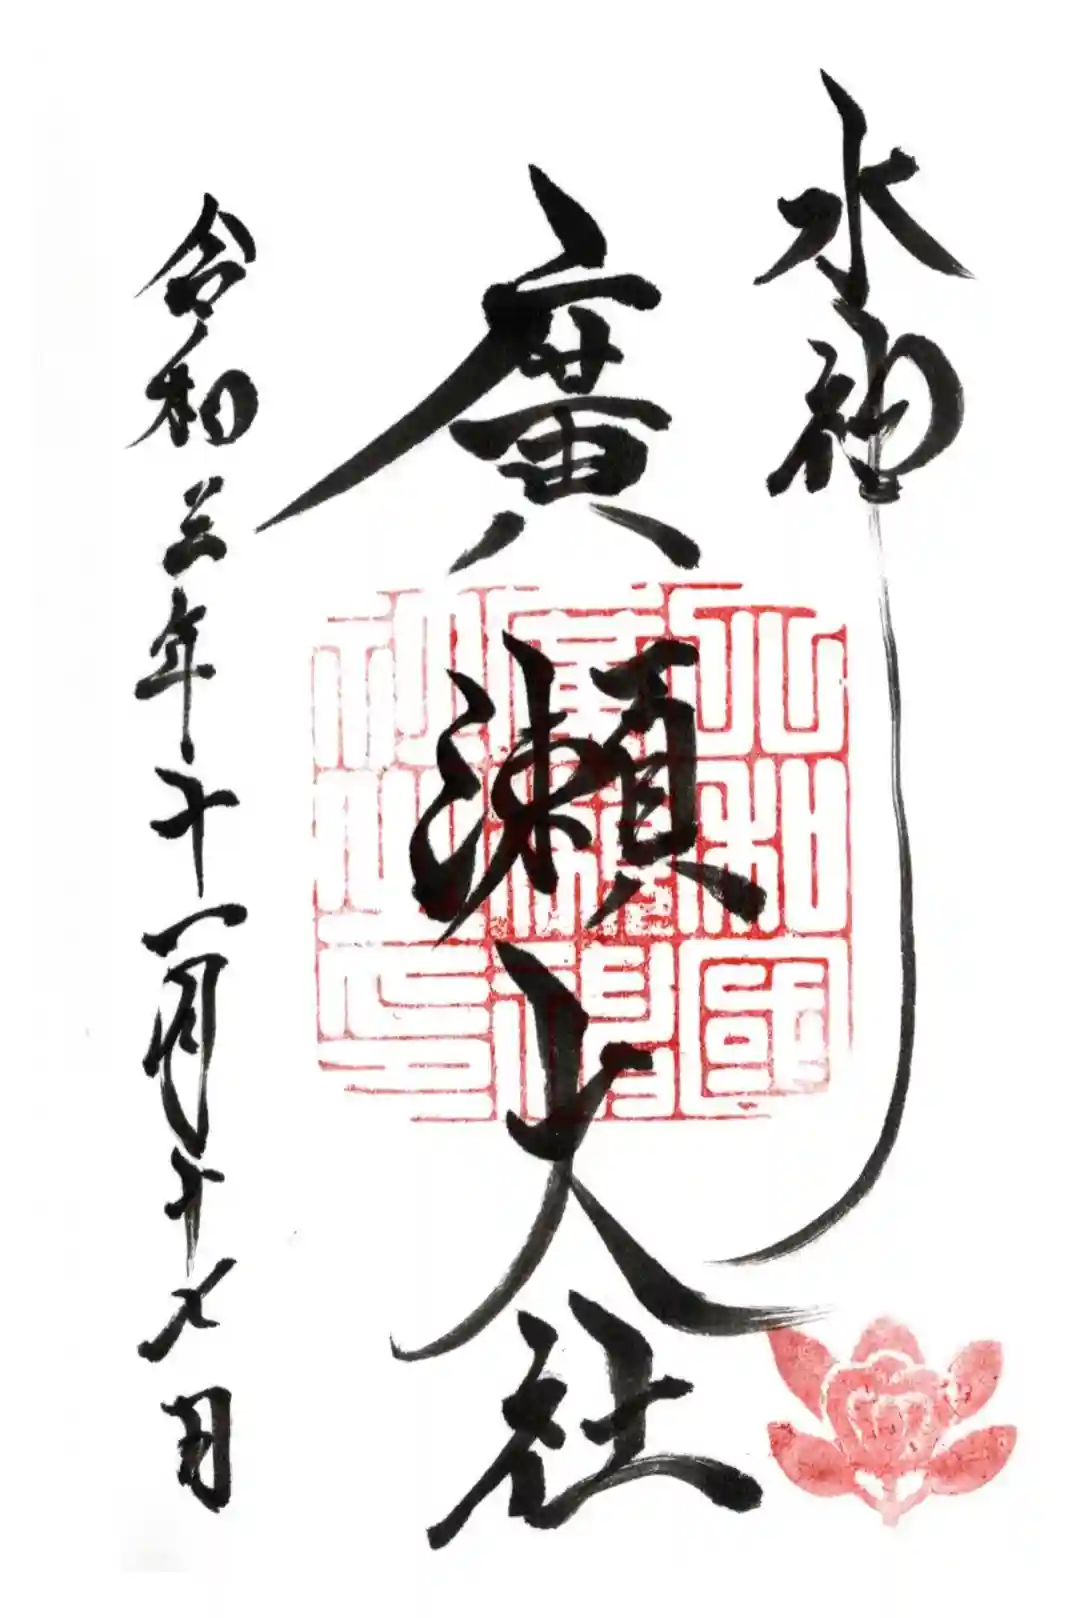 水神
廣瀬大社
令和三年十一月十七日
大和國廣瀬神社之印